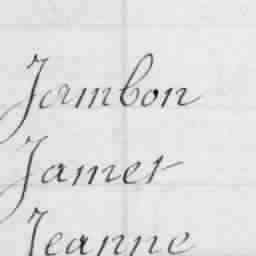 Jambon
Jamet
Jeanne